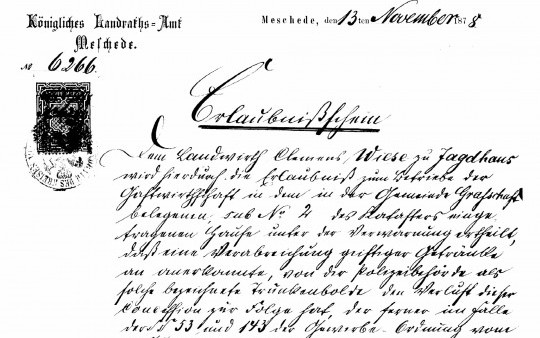 Königliches Landraths-Amt
Meschede.
Meschede, den 13ten November 1878
No 6266.
Erlaubnißschein
Dem Landwirth Clemens Wiese zu Jagdhaus
wird hierdurch die Erlaubniß zum Betriebe der
Gastwirthschaft in dem in der Gemeinde Grafschaft
belegenen, sub No 2 des Katasters einge-
tragenen Hause unter der Verwarnung ertheilt,
daß eine Verabreichung geistiger Getränke
an anerkannte, von der Polizeibehörde als
solche bezeichnete Trunkenbolde den Verlust dieser
Concession zur Folge hat, der ferner im Falle
der §§ 53 und 143 der Gewerbe-Ordnung vom